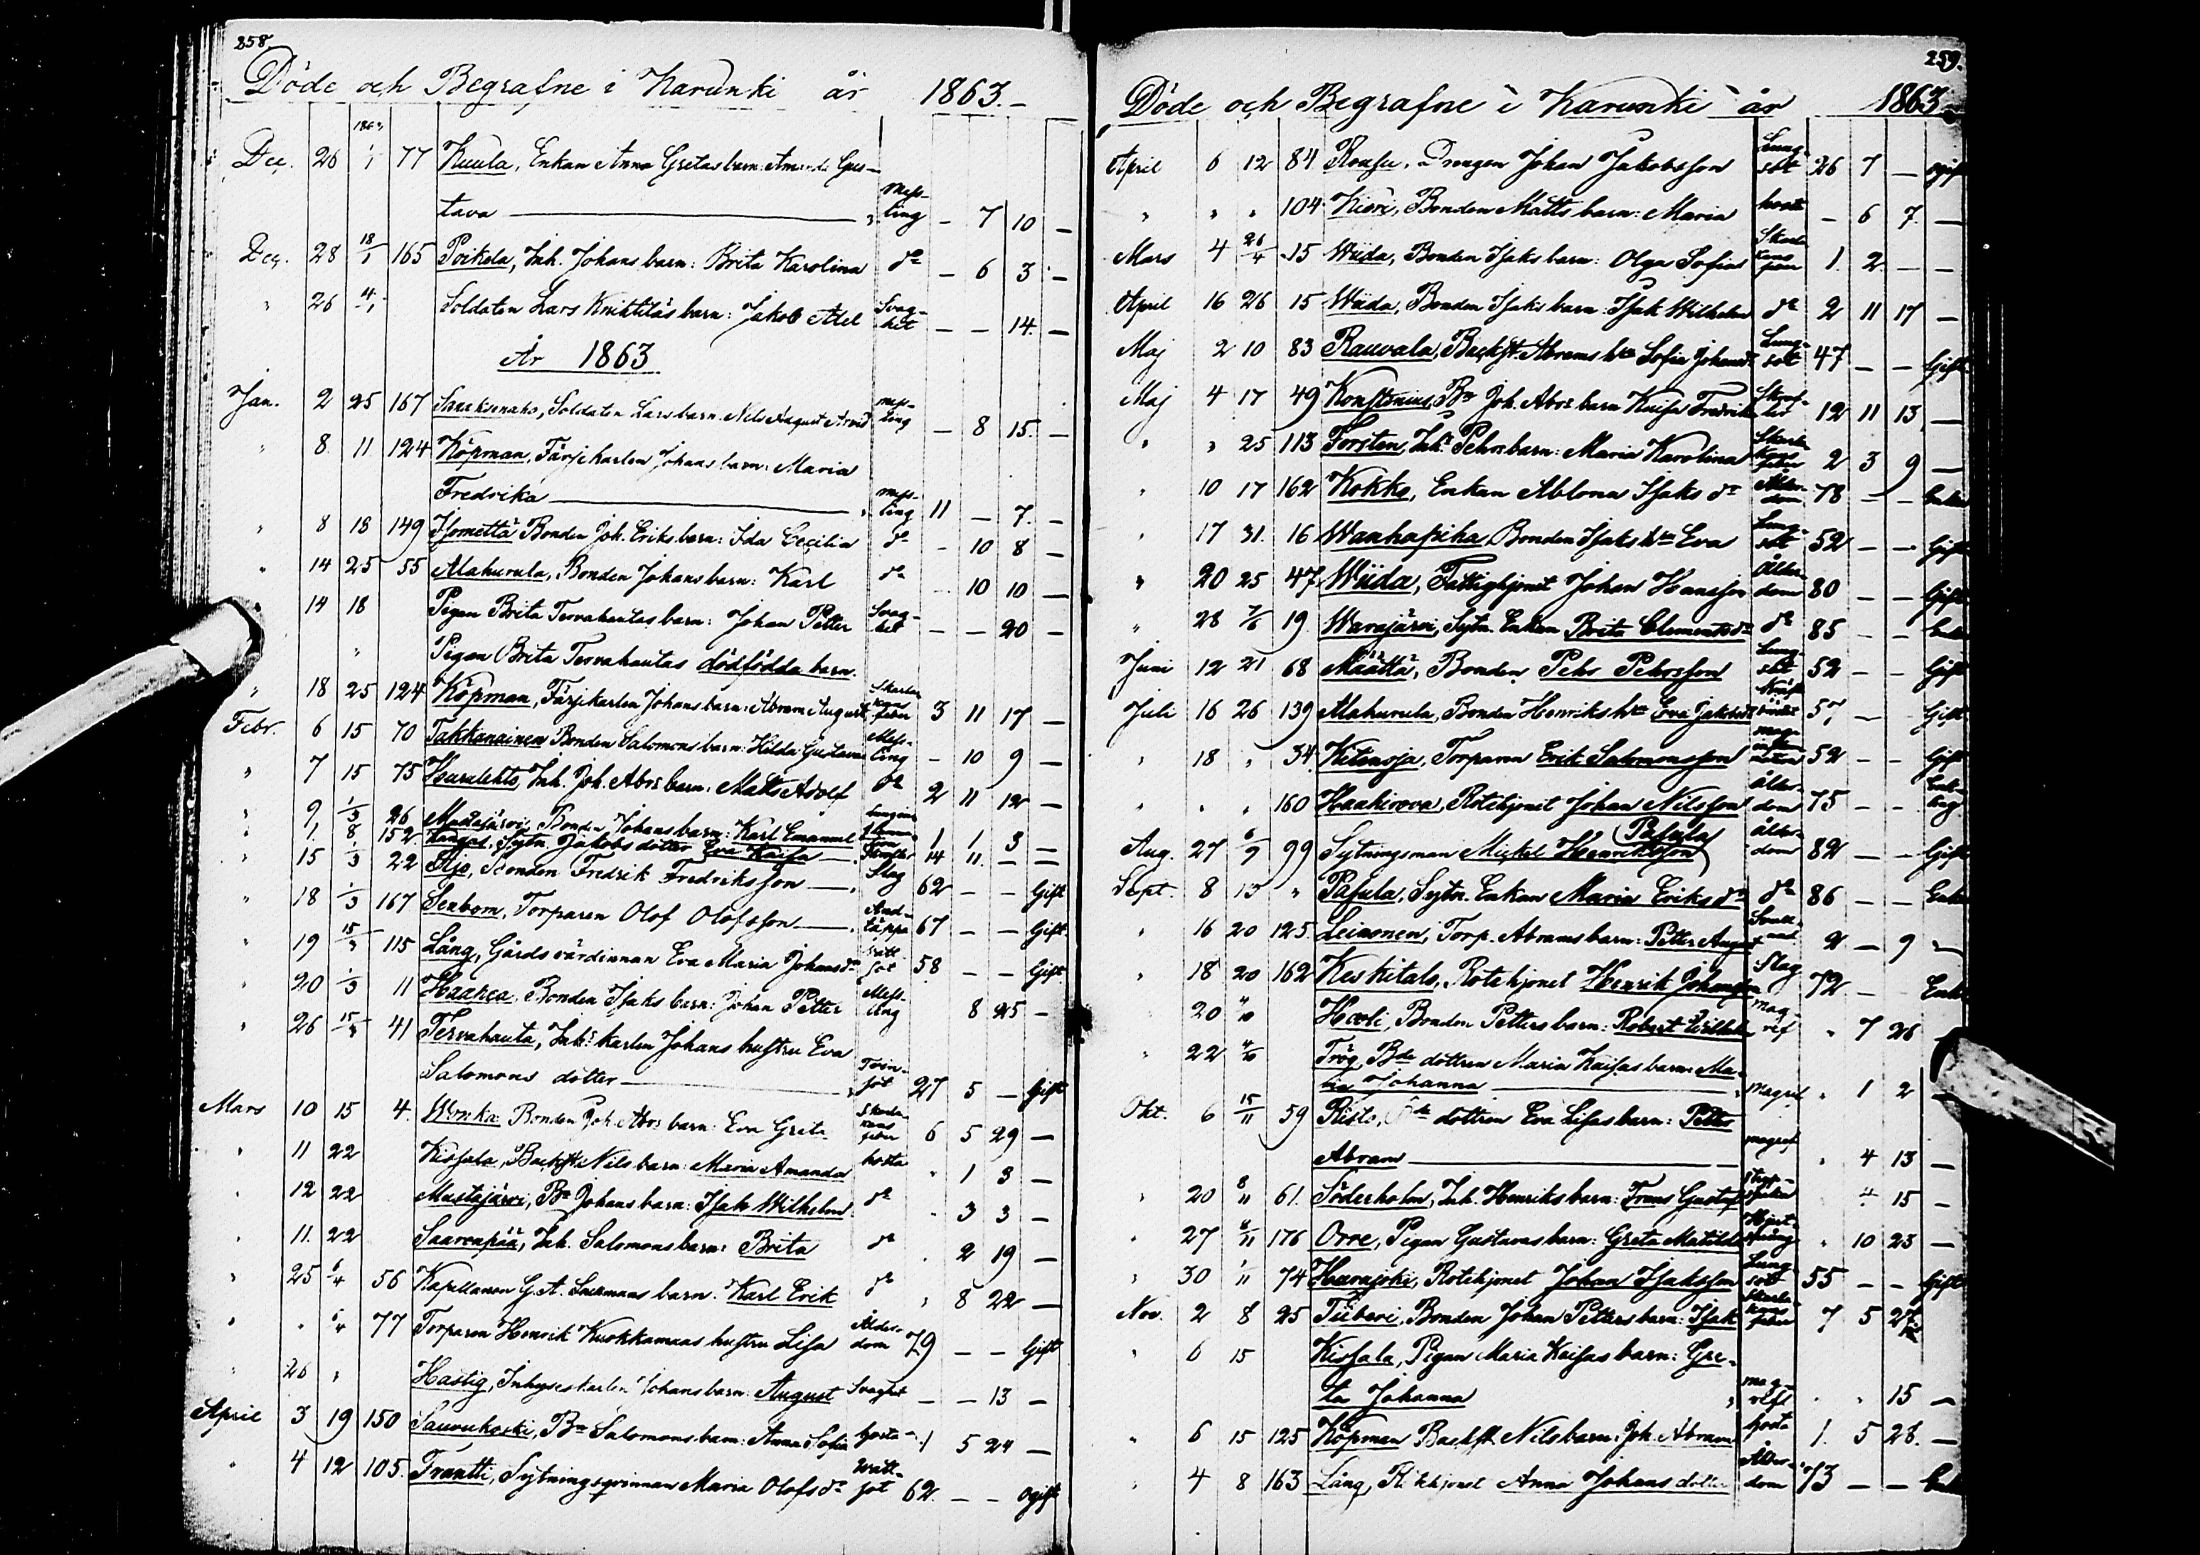 258.
Döde och Begrafne i Karunki år 1863.
1863
Dec. 26 1/1 77 Kuula, Enkan Anna Gretas barn: Amanda Gus-
tava — Mess-ling – 7 10 –
Dec. 28 18/1 165 Poikela, Inh. Johans barn: Brita Karolina do – 6 3 –
" 26 4/1 Soldaten Lars Knihtiläs barn: Jakob Svag-het – – 14. –
År 1863
Jan. 2 25 167 Soldaten Lars barn: Nils August Arvid mess-ling – 8 15. –
" 8 11 124 Köpman, Färjekarlen Johans barn: Maria
Fredrika — mess-ling 11 – 7. –
" 8 18 149 Ilomettä Bonden Joh. Eriks barn: Ida Cecilia do – 10 8 –
" 14 25 55 Alahurula, Bonden Johans barn: Karl do – 10 10 –
14 18 Pigan Brita Tervahautas barn: Johan Petter Svag-het – – 20 –
" Pigan Brita Tervahautas dödfödda barn.
" 18 25 124 Köpman, Färjekarlen Johans barn: Abram August Skarlakansfeber 3 11 17 –
Febr. 6 15 70 Takkanainen Bonden Salomons barn: Hilda Gustava Mess-ling – 10 9 –
" 7 15 75 Inh. Joh. Abrs barn: Matts Adolf do 2 11 12 –
" 9 1/3 26 Bonden Johans barn: Karl Emanuel 1 1 3 –
" 1 8/ 152 Kangas, Sytn. Jakobs dotter Eva Kaisa 14 11 – –
" 15 1/3 22 Bonden Fredrik Fredriksson — Slag 62 – – Gift
" 18 1/3 167 Senbom, Torparen Olof Olofsson — And-täppa 67 – – Gift
" 19 15/3 115 Lång, Gårdsvärdinnan Eva Maria Johansdr 58 – – Gift
" 20 1/3 11 Bonden Isaks barn: Johan Petter Mess-ling 8 25 –
" 26 15/3 41 Tervahauta, Inhs karlen Johans hustru Eva
Salomons dotter — 27 5 – Gift
Mars 10 15 4. Bonden Joh. Abrs barn: Eva Greta Skarlakansfeber 6 5 29 –
" 11 22 Kissala, Backst. Nils barn: Maria Amanda hosta " 1 3 –
" 12 22 Mustajärvi, Bn Johans barn: Isak Wilhelm do " 3 3 –
" 11. 22 Saarenpää, Inh. Salomons barn: Brita do " 2 19 –
" 25 6/4 56 Kapellanen G. A. barn: Karl Erik do " 8 22 –
" " 6/4 77 Torparen Henrik Kuokkamaas hustru Lisa Ålder-dom 79 – – Gift
" 26 " Hastig, Inhyseskarlen Johans barn: August Svaghet – – 13 –
April 3 19 150 Sauvukoski, Bn Salomons barn: Anna Sofia hosta 1 5 24 –
" 4 12 105. Frantti, Sytningsqvinnan Maria Olofsdr Watt-sot 62. – – ogift
259.
Döde och Begrafne i Karunki år 1863
April 6 12 84 Rousu, Drengen Johan Jakobsson Lung-sot 26 7 – ogift
" " " 104 Kieri, Bonden Matts barn: Maria hosta – 6 7. –
Mars 4 26/4 15 Wiida, Bonden Isaks barn: Olga Sofia 1. 2 – –
April 16 26 15 Wiida, Bonden Isaks barn: Isak Wilhelm do 2 11 17 –
Maj 2 10 83 Rauvala, Backst. Abrams hu Sofia Lung-sot 47 – – Gift
Maj 4 17 49 Konstenius, Bn Joh. Abrs barn Kaisa Fredrika 12 11 13 –
" " 25 113 Forsten, Inhs Pehrs barn: Maria Karolina Skarlakansfeber 2 3 9 –
" 10 17 162 Kokko, Enkan Ablona Isaks dr Ålder-dom 78 – – Enka
" 17 31. 16 Wanhapiha Bonden Isaks hu Eva Lung-sot 52 – – Gift
" 20 25 47 Wiida, Fattighjonet Johan Hansson Ålder-dom 80 – – Gift
" 28 7/6 19. Warajärvi, Sytn. Enkan Brita Clementsdr do 85 – – Enka
Juni 12 21 68 Määttä, Bonden Pehr Pehrsson Lung-sot 52 – – Gift
Juli 16 26 139 Alahurula, Bonden Henriks hu Eva Jakobsdr 57 – Gift
" 18 " 34 Torparen Erik Salomonsson 52 – – Gift
" " " 160 Rotehjonet Johan Nilsson ålder-dom 75 – –
Aug. 27 6/9 99 Sytningsman Mickel Henriksson (Pasula) ålder-dom 82 – – Gift
Sept. 8 13 " Pasula, Sytn. Enkan Maria Eriksdr do 86 – – Enka
" 16 20 125. Leinonen, Torp. Abrams barn: Petter August 2 – 9 –
" 18 20 162 Keskitalo, Rotehjonet Henrik Johansson Slag 72 –
20 4/10 Hooli, Bonden Petters barn: Robert Wilhelm mag-ref " 7 26
" 22 4/10 Trög, Bde dottren Maria Kaisas barn: Ma-
ria Johanna — magref " 1 2
Okt. 6 15/11 59 Risto, Bde dottren Eva Lisas barn: Petter
Abram — magref " 4 13 –
" 20 8/11 61. Söderholm, Inh. Henriks barn: Frans Gustaf 4 15 –
" 27 8/11 176 Orre, Pigan Gustavas barn: Greta Matilda " 10 23 –
" 30 1/11 74 Rotehjonet Johan Isaksson Lung-sot 55 – – Gift
Nov. 2 8 25 Tiiberi, Bonden Johan Petters barn: Isak Skarlakansfeber 7 5 27
" 6 15 Kissala, Pigan Maria Kaisas barn: Gre-
ta Johanna " " 15 –
" 6 15 125 Köpman Backst. Nils barn: Joh. Abram hosta 1. 5 28. –
" 4 8 163 Lång, Rotehjonet Anna Johans dotter Ålder-dom 73 – – Enka